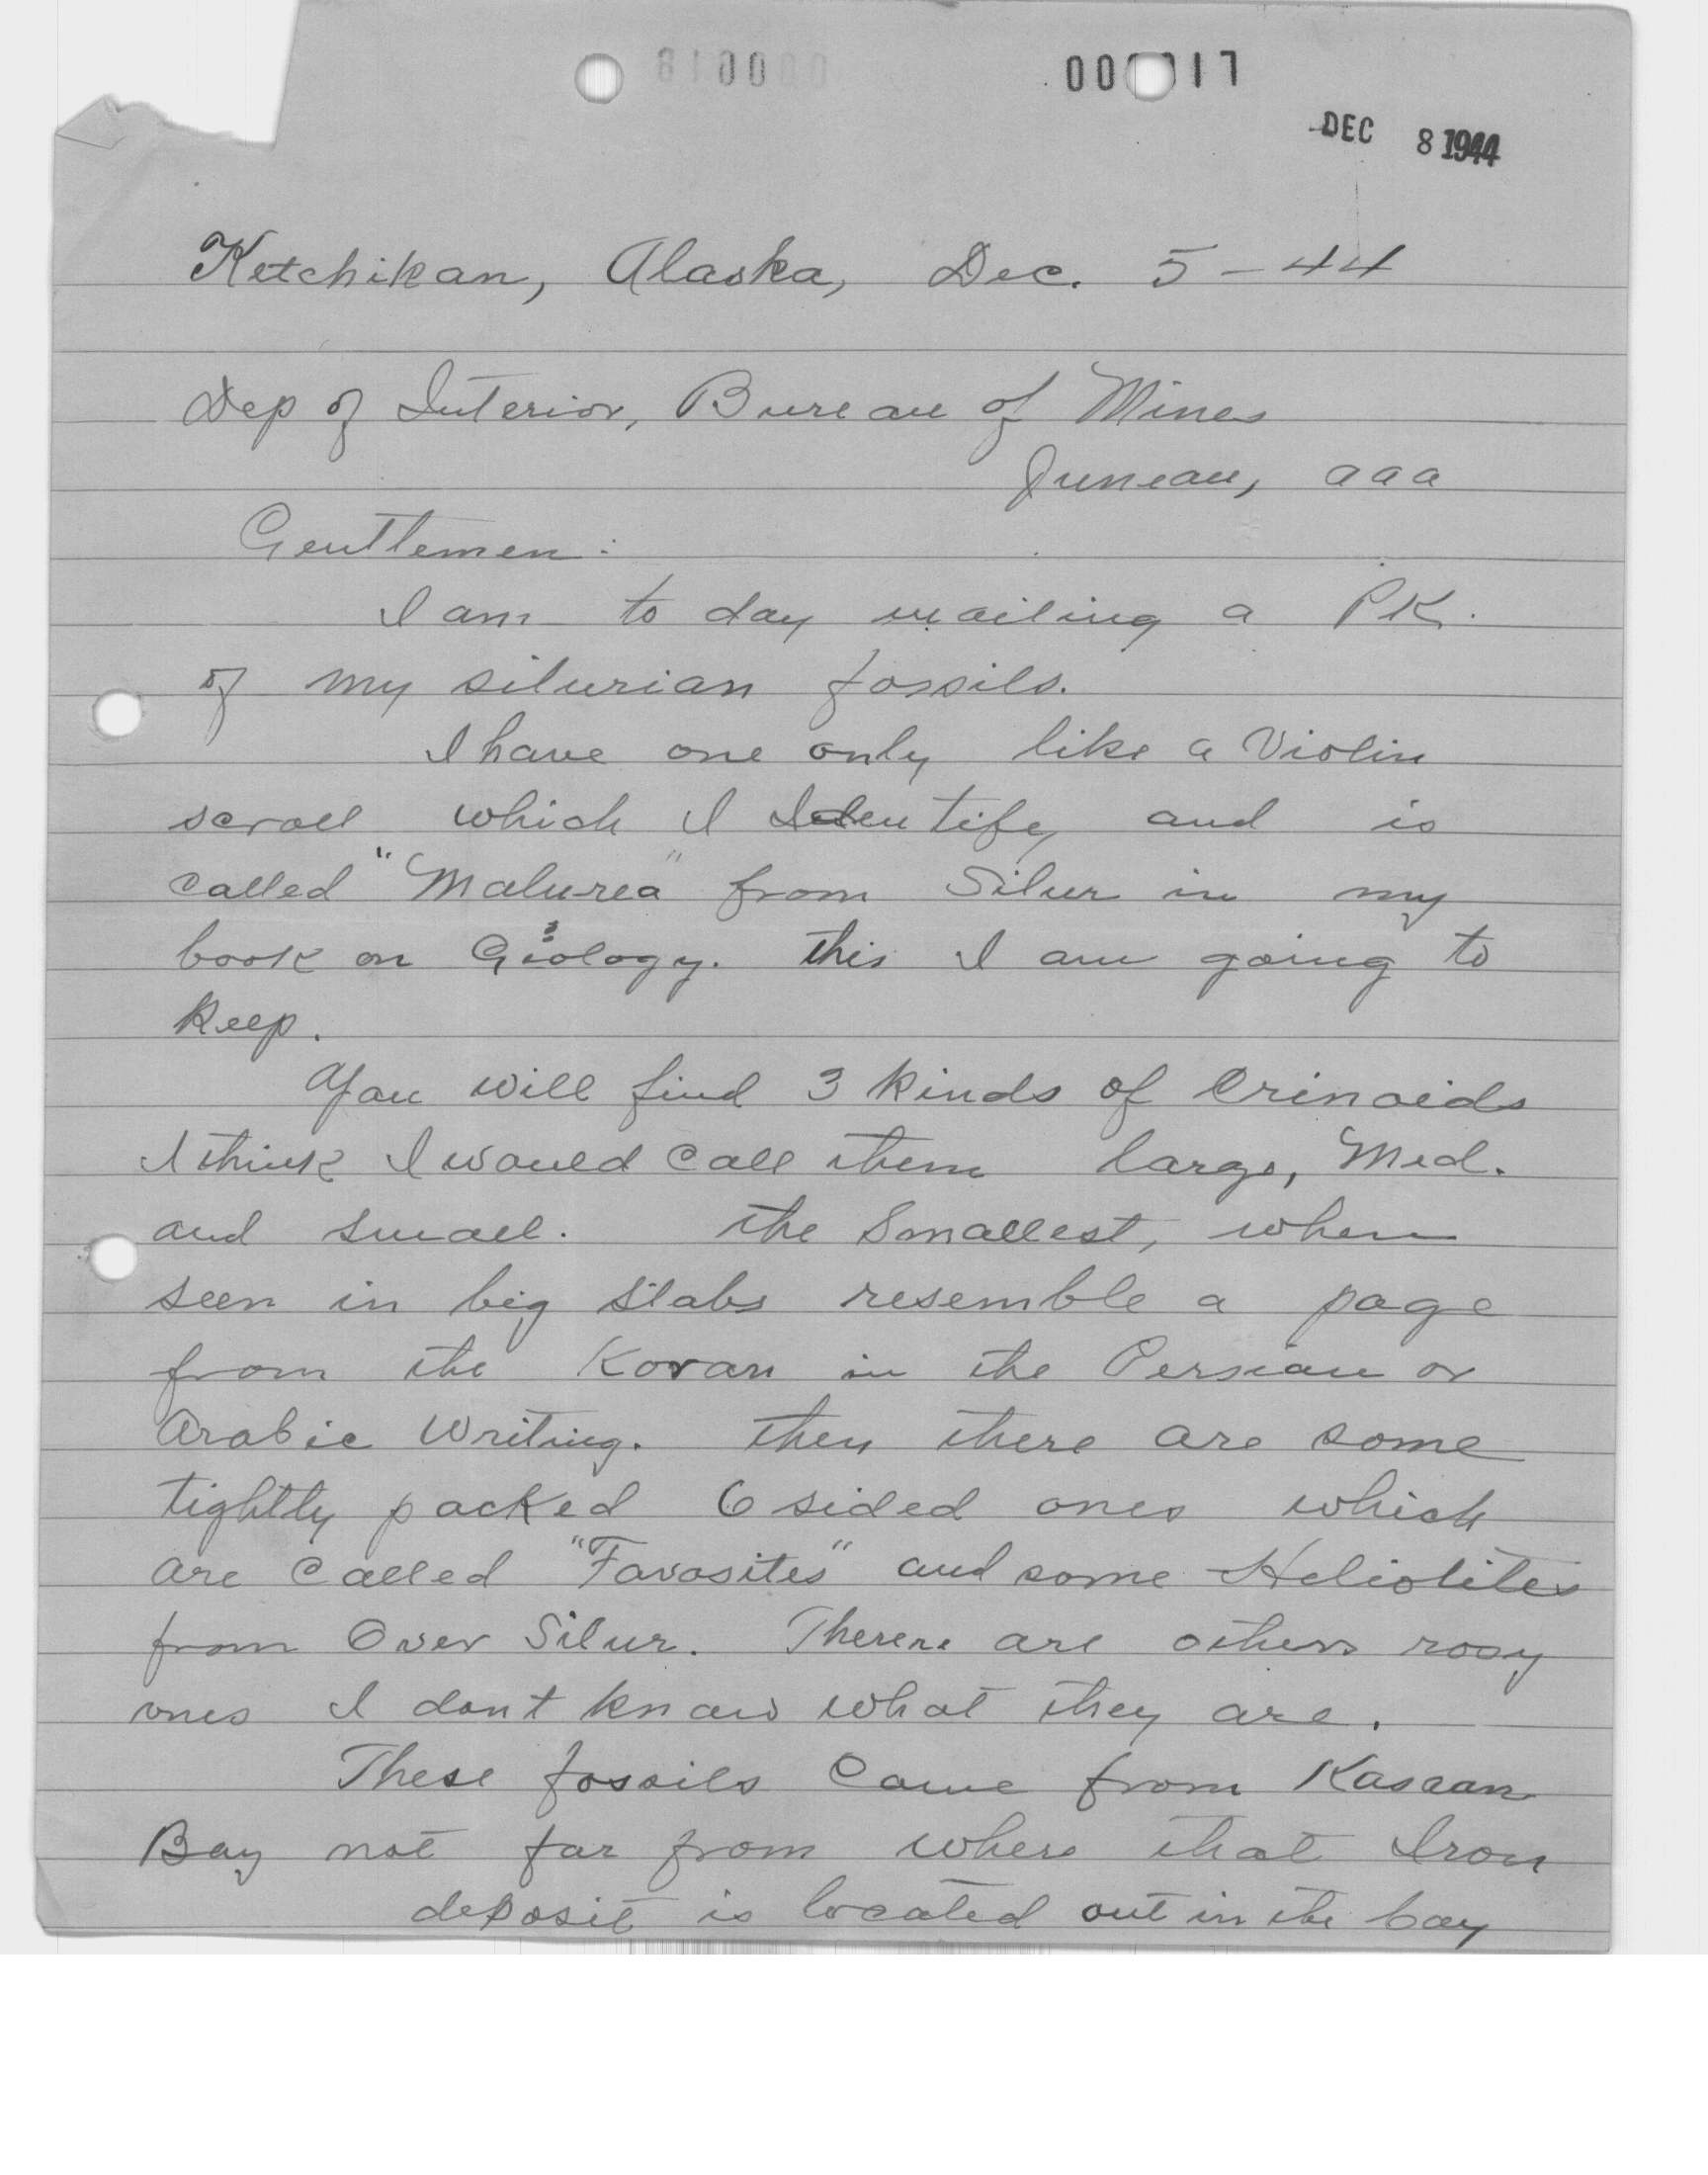 000017
DEC 8 1944
Ketchikan, Alaska, Dec. 5-44
Dep of Interior, Bureau of Mines
Juneau, aaa
Gentlemen:
I am to day mailing a PK.
of my silurian fossils.
I have one only like a Violin
scroll which I Identify and is
called "Malurea" from Silur in my
book on Geology. this I am going to
keep.
You will find 3 kinds of Crinoids
I think I would call them large, Med.
and small. the Smallest, when
seen in big slabs resemble a page
from the Koran in the Persian or
Arabic Writing. then there are some
tightly packed 6 sided ones which
are called "Favosites" and some Heliolites
from Over Silur. There are others rosy
ones I dont know what they are.
These fossils came from Kasaan
Bay not far from where that Iron
deposit is located out in the bay